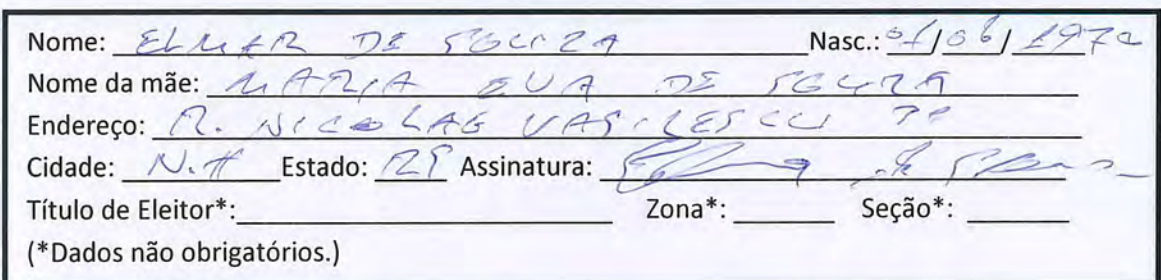 Nome: ELMAR DE SOUZA Nasc.: 01/06/1970
Nome da mãe: MARIA EVA DE SOUZA
Endereço: R. NICOLAS VASILESCU
Cidade: N.H Estado: RS Assinatura:
Título de Eleitor*: Zona*: Seção*:
(*Dados não obrigatórios.)